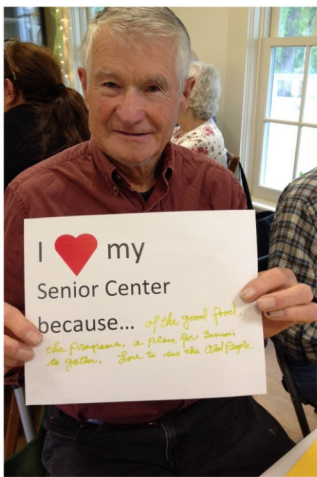 I ❤ my
Senior Center
because... of the good food,
the programs, a place for Seniors
to gather. Love to see the Old People